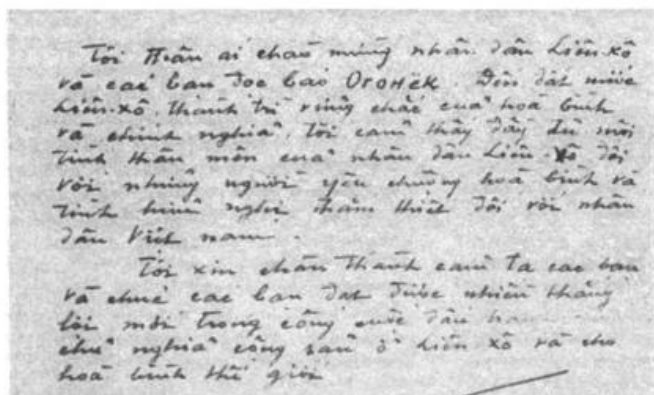 Tôi thân ái chào mừng nhân dân Liên-xô
và các bạn đọc báo ОГОНЁК. Đến đất nước
Liên-xô, thành trì vững chắc của hoà bình
và chính nghĩa, tôi cảm thấy đầy đủ mối
tình thân mến của nhân dân Liên-xô đối
với những người yêu chuộng hoà bình và
tình hữu nghị thắm thiết đối với nhân
dân Việt nam.
Tôi xin chân thành cảm tạ các bạn
và chúc các bạn đạt được nhiều thắng
lợi mới trong công cuộc
chủ nghĩa cộng sản ở Liên xô và cho
hoà bình thế giới